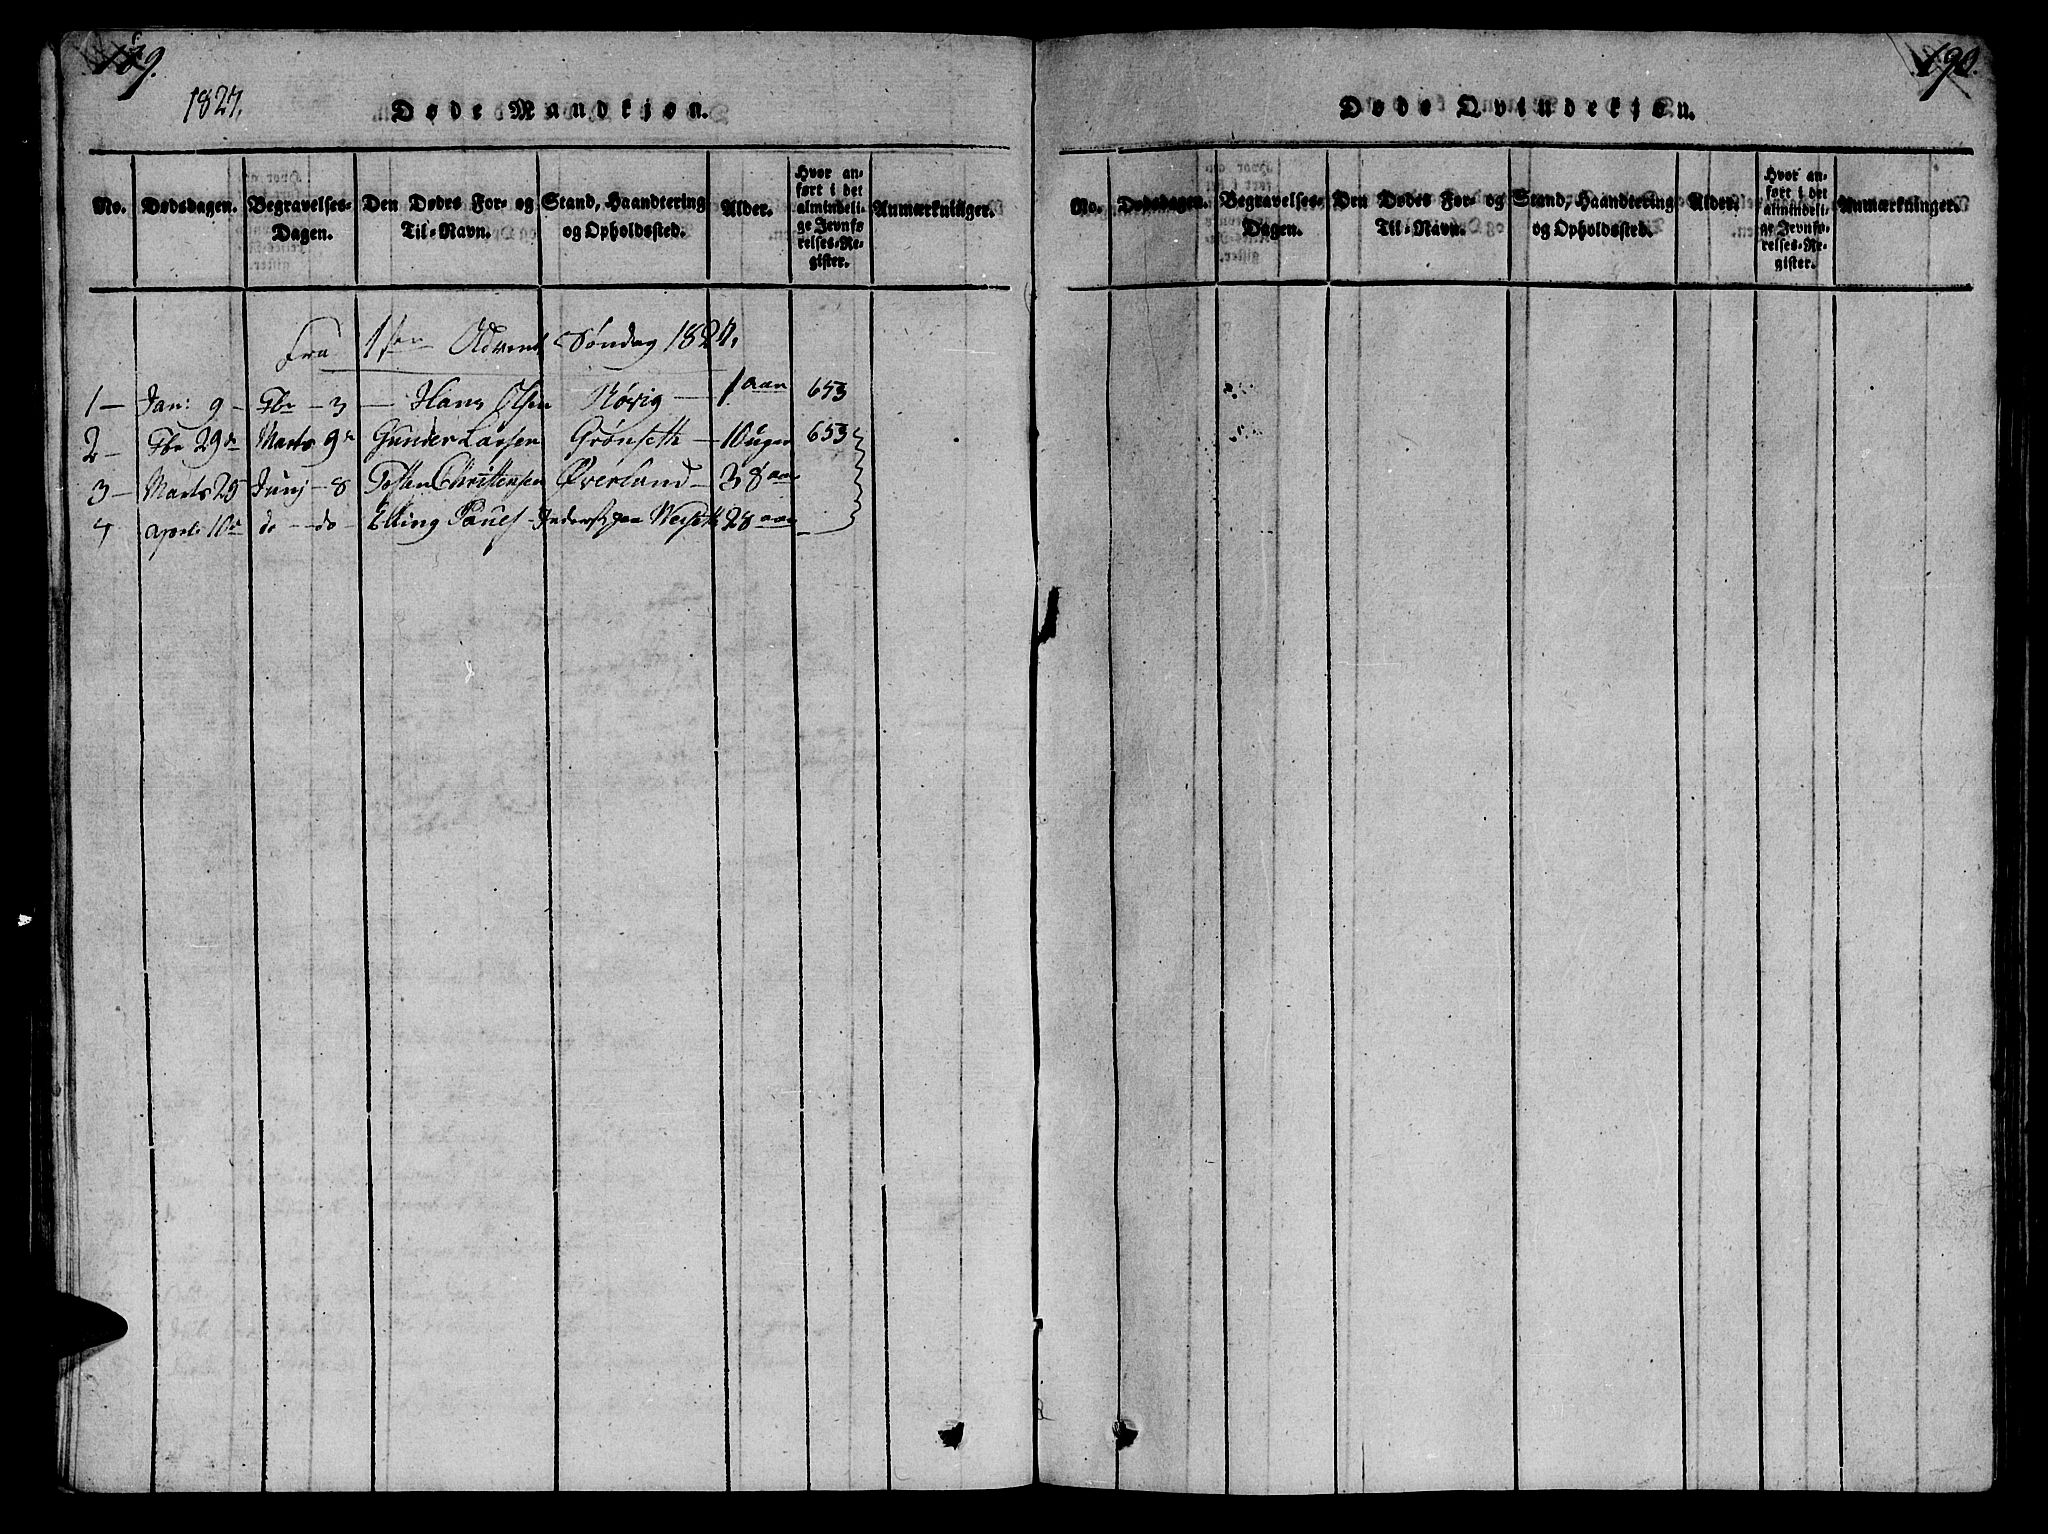 189.
1827.
Døde Mandkjøn.
No. Dødsdagen. Begravelses-Dagen. Den Dødes For- og Til-Navn. Stand, Haandtering og Opholdssted. Alder. Hvor anført i det almindelige Jevnførelses-Register. Anmærkninger.
Fra 1ste Advent Søndag 1827.
1 – Jan: 9 – Fbr – 3 – Hans Olsen Røvig – 1 aar 653
2 – Fbr 29de Marts 9de Gunder Larsen Grønseth – 10 uger 653
3 – Marts 25 Junj – 8 Tosten Christensen Øverland – 38 aar
4 April 10de do – do – Elling Paules Inderst paa Werseth 28 aar –
190.
Døde Qvindekjøn.
No. Dødsdagen. Begravelses-Dagen. Den Dødes For- og Til-Navn. Stand, Haandtering og Opholdssted. Alder. Hvor anført i det almindelige Jevnførelses-Register. Anmærkninger.